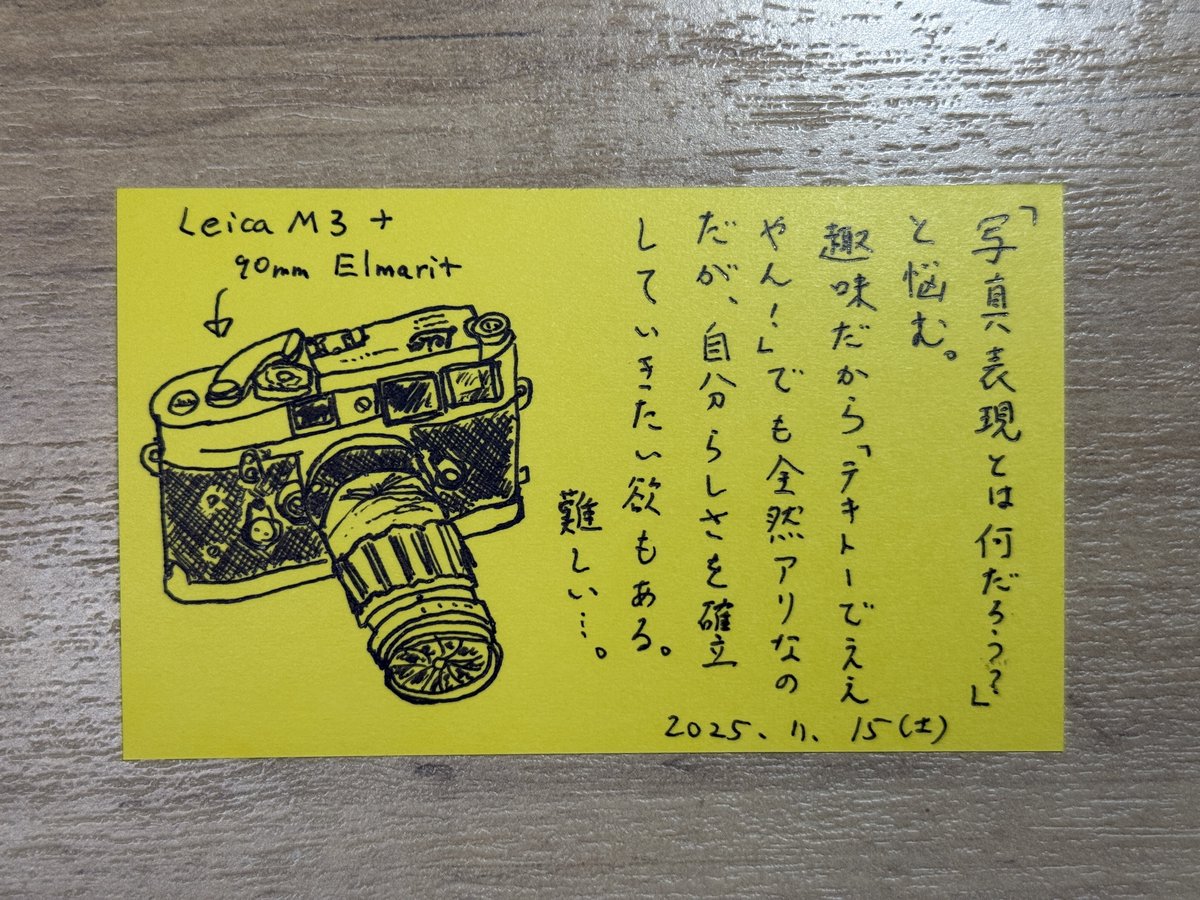 Leica M3 +
90mm Elmarit
「写真表現とは何だろう?」
と悩む。
趣味だから「テキトーでええ
やん!」でも全然アリなの
だが、自分らしさを確立
していきたい欲もある。
難しい…。
2025.11.15(土)